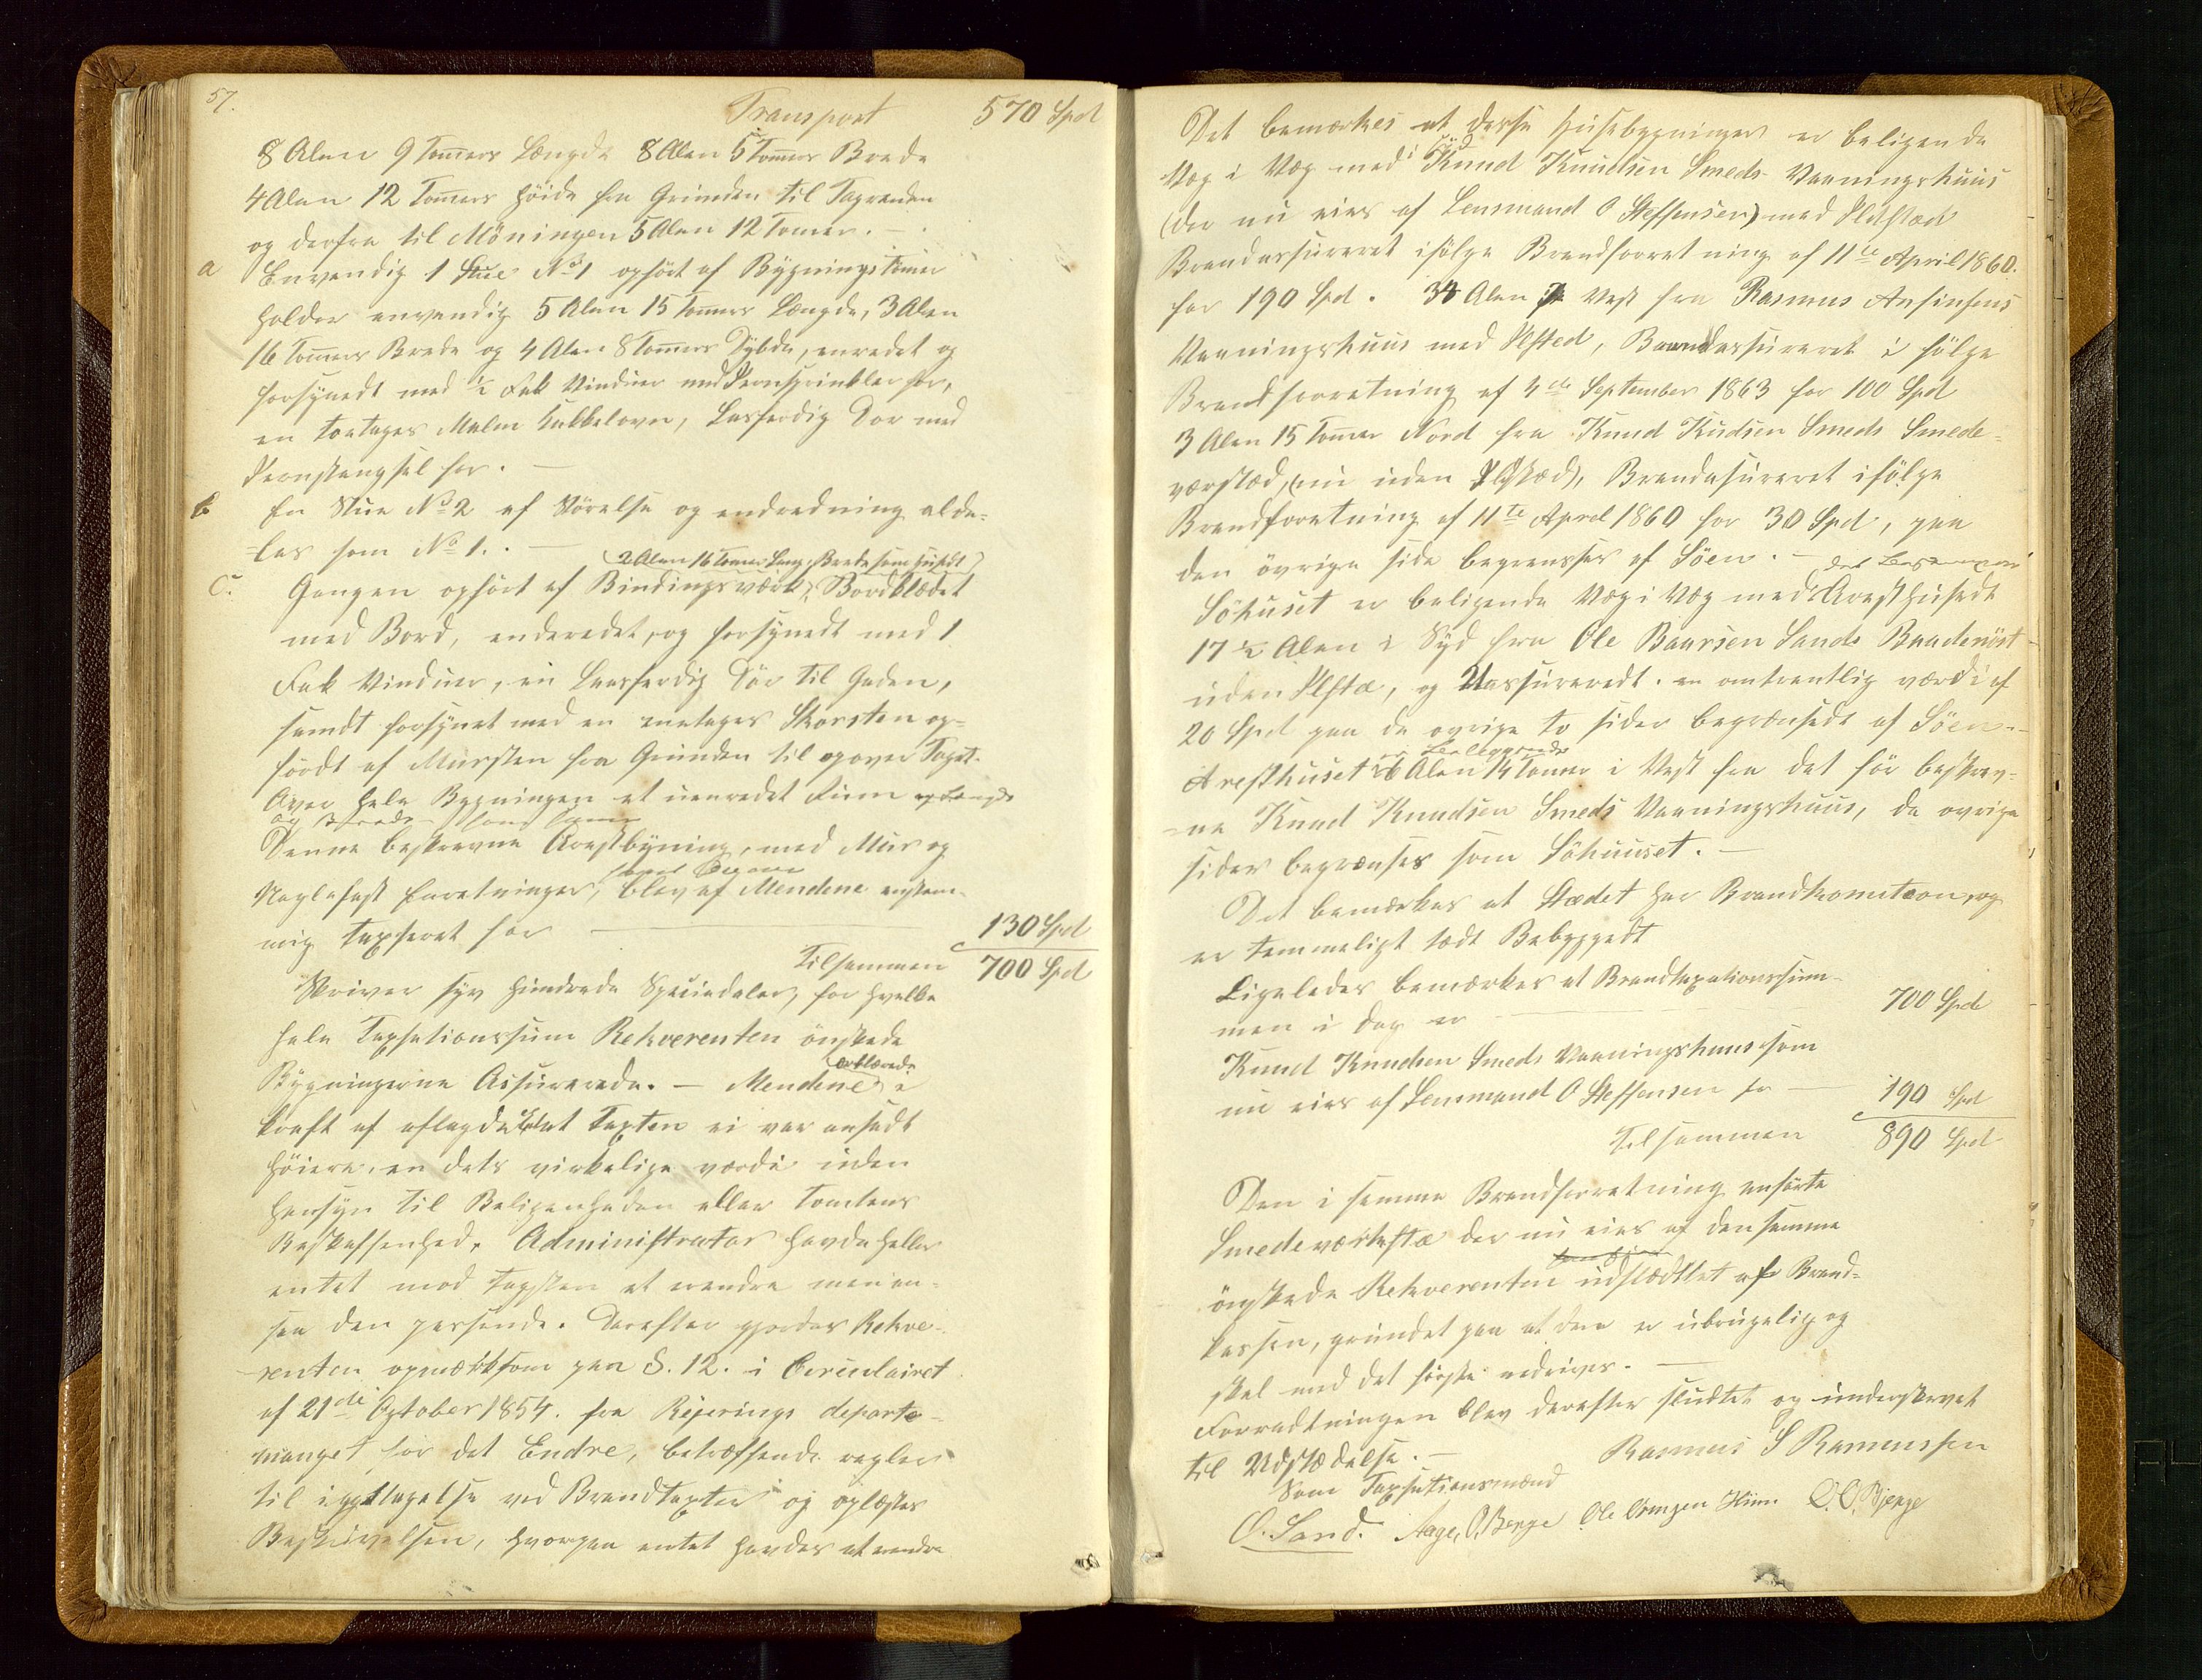 57.
Transport 570 Spd
8 Alen 9 Tommers Længde 8 Alen 5 Tommers Brede
4 Alen 12 Tommers Høide fra Grunden til Tagrenden
og derfra til Møningen 5 Alen 12 Tomer. –
a Envendig 1 Stue No 1 opført af Bygningstømer
holder envendig 5 Alen 15 Tommers Længde, 3 Alen
16 Tommers Brede og 4 Alen 8 Tommers Dybde, enredet og
forsynedt med ½ Fak Vinduer med Jernsprinkler for,
en toetages Malm Kakkelovn, Lasferdig Dør med
Jernstængsel for. –
b En Stue No 2 af Størelse og endredning alde-
=les som No 1. . –
(2 Alen 16 Tomer Læng, Brede som huset)
C. Gangen opført af Bindingsværk, Bordklædet
med Bord, enderedet, og forsynedt med 1
Fak Vinduer, en Laasferdig Dør til Gaden,
samdt forsynet med en enetages Skorsten op-
førdt af Mursten fra Grunden til og over Taget.
Over hele Bygningen et uenredet Rum og Længde
og Brede
Denne beskrevne Arestbyning, med Mur og
Naglefast Enretninger, blev af Mendene enstem-
mig Taxseret for – 130 Spd
Tilsammen 700 Spd
Skriver syv Hundrede Speciedaler, for hvelke
hele Taxsationssum Rekverenten ønskede
Bygningerne Assurerede. – Mendene erklærede i
kraft af aflagde Eed at Taxten ei var ansadt
høiere, en dets virkelige værdi uden
Hensyn til Beligenheden eller Tomtens
Beskaffenhed. Administrator havde heller
entet mod Taxsten at erendre men an-
saa den passende. Derefter gjordes Rekve-
renten opmærksom paa §. 12. i Circulairet
af 21de October 1854. fra Rejerings departe-
manget for det Endre, betræffende regler
til iagttagelse ved Brandtaxter og oplæstes
Beskrivelsen, hvorpaa entet havdes at erendre
Det bemærkes at desse Husebygninger er beligende
Væg i Væg med Knud Knudsen Smeds Vaaningshuus
(der nu eies af Lensmand O Steffensen) med Ildsted
Brandassureret ifølge Brandforretning af 11te April 1860.
for 190 Spd. 34 Alen Vest fra Rasmus Ansinsens
Vaaningshuus med Ilsted, Brandassureret i følge
Brandforretning af 4de September 1863 for 100 Spd
3 Alen 15 Tomer Nord fra Knud Kudsen Smeds Smede-
værstæd, (nu uden Ilstæd), Brandasureret ifølge
Brandforetning af 11te Aprel 1860 for 30 Spd, paa
den øvrige side begrensses af Søen. –
Søhuset er beligende Væg i Væg med Aresthusedt
17 ½ Alen i Syd fra Ole Baarsen Sands Baadenøst
uden Ilstæ, og Uassureredt. en omtrentlig værdi af
20 Spd paa de øvrige to sider begrænsedt af Søen. –
er Beliggende
Aresthuset 26 Alen 14 Tomer i Vest fra det før beskrev-
-ne Knud Knudsen Smeds Vaaningshuus, de øvrige
sider begrænses som Søhuuset. –
Det bemærkes at Stædet har Brandkomitæon, og
er temmeligt tædt Bebyggedt
Ligeledes bemærkes at Brandtaxationssum-
men i dag er – 700 Spd
Knud Knudsen Smeds Vaaningshuus som
nu eies af Lensmand O Steffensen for – 190 Spd
Tilsammen 890 Spd
Den i samme Brandforretning anførte
Smedeværkstæ der nu eies af den samme
ønskede Rekverenten udslædtlet af Brand-
kassen, grundet paa at den er ubrugelig og
skal med det første nedrives. –
Forredtningen blev derefter sludtet og underskrevet
til Udstædelse. – Rasmus S Rasmussen
Som Taxsationsmænd
O. Sand. Aage, P. Berge Ole Ormsen Hiim O. O. Bjerge